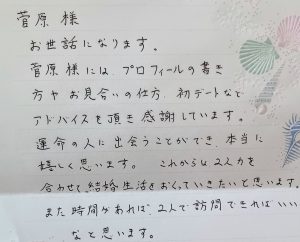 菅原様
お世話になります。
菅原様には、プロフィールの書き
方やお見合いの仕方、初デートなど
アドバイスを頂き感謝しています。
運命の人に出会うことができ、本当に
嬉しく思います。 これからも2人力を
合わせて結婚生活をおくっていきたいと思います。
また時間があれば、2人で訪問できればいい
なと思います。